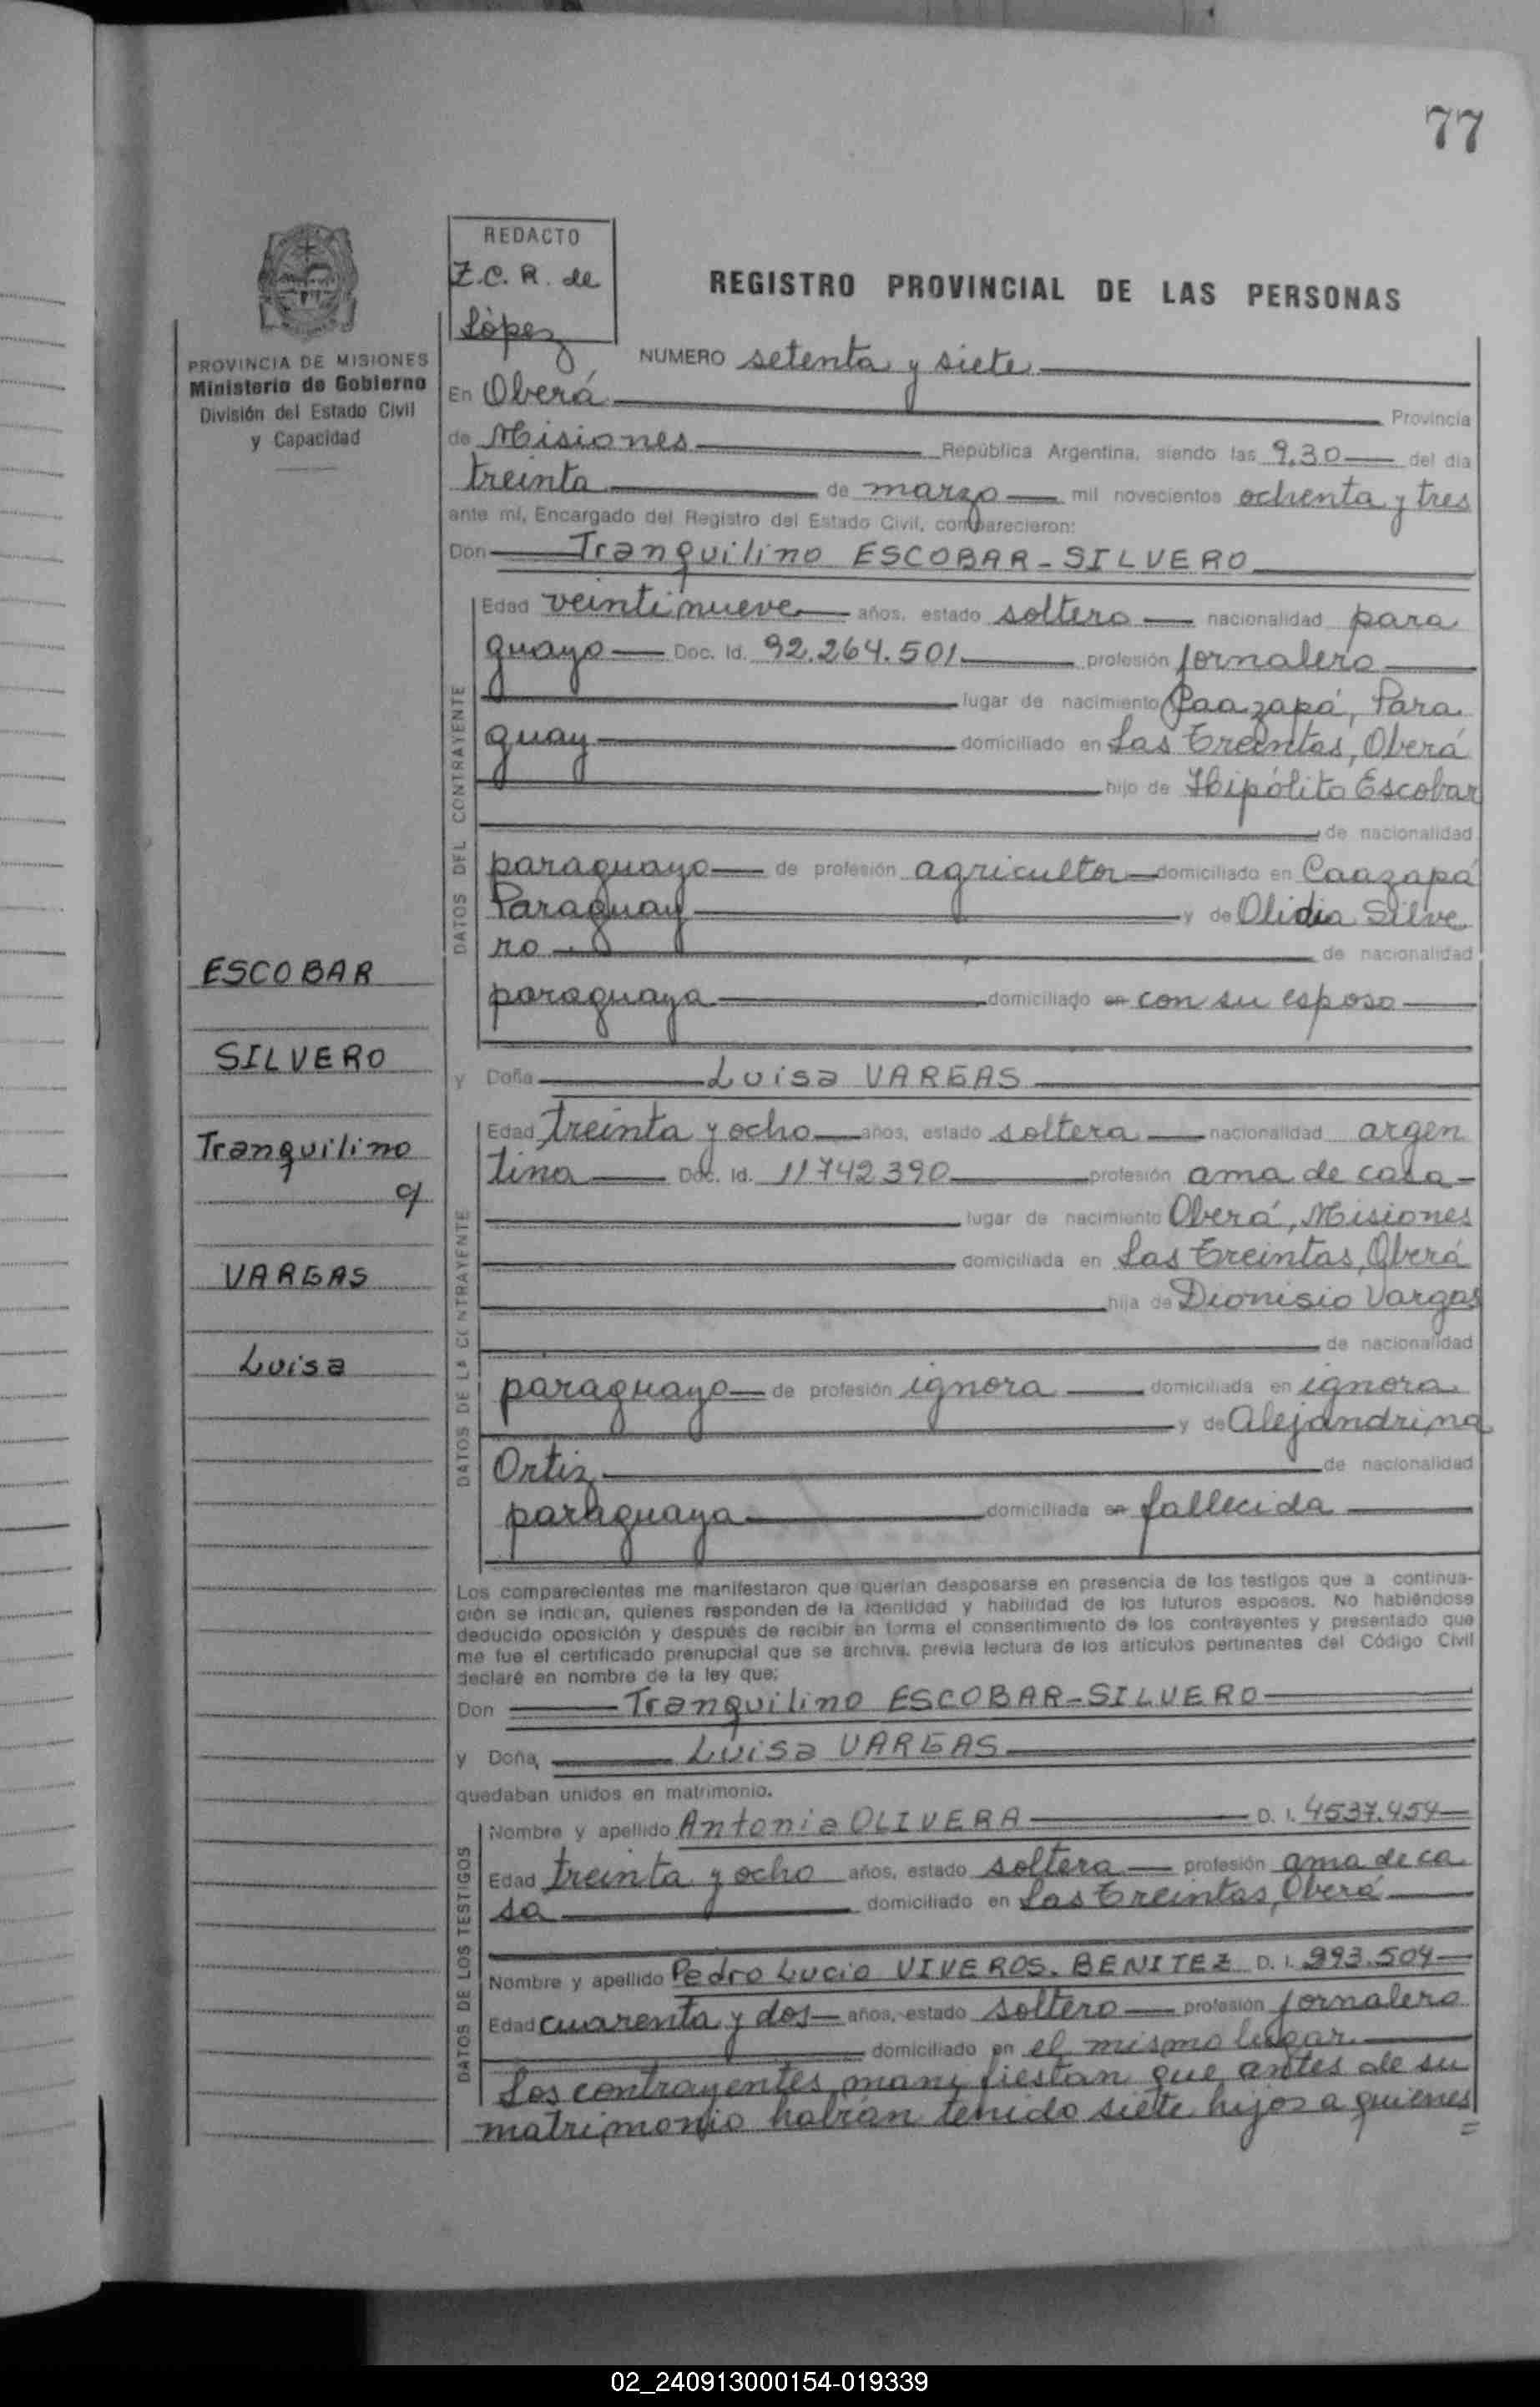 77
REDACTO
Z.C.R. de
López
REGISTRO PROVINCIAL DE LAS PERSONAS
PROVINCIA DE MISIONES
Ministerio de Gobierno
División del Estado Civil
y Capacidad
NUMERO setenta y siete
En Oberá Provincia
de Misiones República Argentina, siendo las 9,30 del día
treinta de marzo mil novecientos ochenta y tres
ante mí, Encargado del Registro del Estado Civil, comparecieron:
Don Tranquilino ESCOBAR-SILVERO
DATOS DEL CONTRAYENTE
Edad veintinueve años, estado soltero nacionalidad para
guayo Doc. Id. 92.264.501 profesión jornalero
lugar de nacimiento Caazapá, Para
guay domiciliado en Las Treintas, Oberá
hijo de Hipólito Escobar
de nacionalidad
paraguayo de profesión agricultor domiciliado en Caazapá
Paraguay y de Olidia Silve
ro de nacionalidad
paraguaya domiciliado en con su esposo
ESCOBAR
SILVERO
Tranquilino
c/
VARGAS
Luisa
y Doña Luisa VARGAS
DATOS DE LA CONTRAYENTE
Edad treinta y ocho años, estado soltera nacionalidad argen
tina Doc. Id. 11742390 profesión ama de casa
lugar de nacimiento Oberá, Misiones
domiciliada en Las Treintas, Oberá
hija de Dionisio Vargas
de nacionalidad
paraguayo de profesión ignora domiciliada en ignora
y de Alejandrina
Ortiz de nacionalidad
paraguaya domiciliada en fallecida
Los comparecientes me manifestaron que querían desposarse en presencia de los testigos que a continua-
ción se indican, quienes responden de la identidad y habilidad de los futuros esposos. No habiéndose
deducido oposición y después de recibir en forma el consentimiento de los contrayentes y presentado que
me fue el certificado prenupcial que se archiva, previa lectura de los artículos pertinentes del Código Civil
declaré en nombre de la ley que:
Don Tranquilino ESCOBAR-SILVERO
y Doña, Luisa VARGAS
quedaban unidos en matrimonio.
DATOS DE LOS TESTIGOS
Nombre y apellido Antonia OLIVERA D. I. 4537.454
Edad treinta y ocho años, estado soltera profesión ama de ca
sa domiciliado en Las Treintas, Oberá
Nombre y apellido Pedro Lucio VIVEROS. BENITEZ D. I. 993.504
Edad cuarenta y dos años, estado soltero profesión jornalero
domiciliado en el mismo lugar.
Los contrayentes manifiestan que antes de su
matrimonio habían tenido siete hijos a quienes
=
02_240913000154-019339